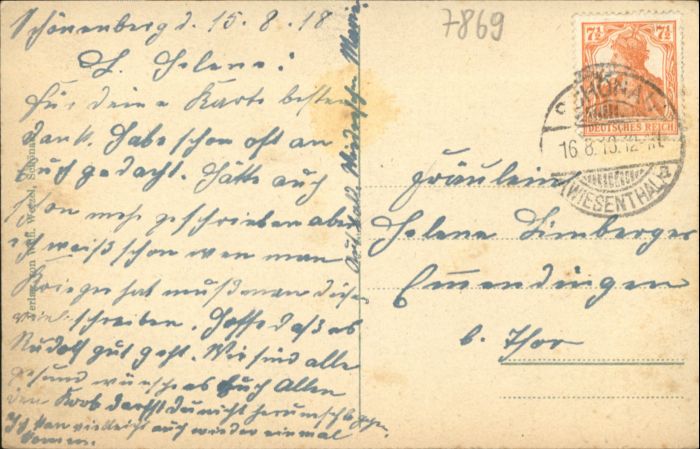 Schönenberg d. 15.8.18
L. Helene!
Für deine Karte besten
Dank. Habe schon oft an
Euch gedacht. Hätte auch
schon mehr geschrieben aber
ich weiß schon wen man
Krieger hat muß man diesen
viel schreiben. Hoffe daß es
Rudolf gut geht. Wir sind alle
gesund wünsche es Euch Allen
den Korb darfst Du nicht herumschleppen
Ich kan vielleicht auch wieder einmal
kommen.
Auf bald. Wiedersehn Marie
Verlag von Wetzel, Schönau
7869
7½ 7½
DEUTSCHES REICH
SCHÖNAU
16.8.18.12
(WIESENTHAL)
Fräulein
Helene Limberger
Emmendingen
b. Thor